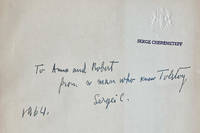 SERGE CHEREMETEFF
To Anna and Robert
from a man who knew Tolstoy.
Sergei C.
1964.